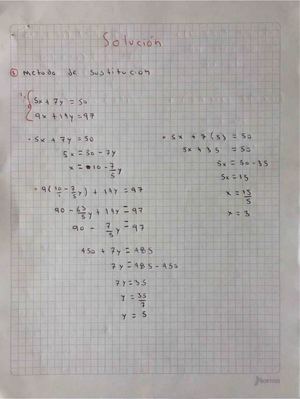 Solución
① Metodo de sustitución
1. { 5x + 7y = 50
9x + 14y = 97
• 5x + 7y = 50
5x = 50 - 7y
x = 10 - 7/5 y
• 9(10/1 - 7/5 y) + 14y = 97
90 - 63/5 y + 14y = 97
90 - 7/5 y = 97
450 + 7y = 485
7y = 485 - 450
7y = 35
y = 35/7
y = 5
• 5x + 7(5) = 50
5x + 35 = 50
5x = 50 - 35
5x = 15
x = 15/5
x = 3
Norma